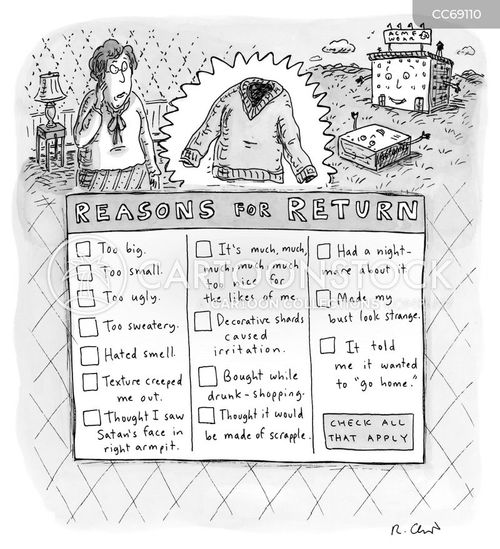 CC69110
ACME
WEAR
REASONS FOR RETURN
Too big.
Too small.
Too ugly.
Too sweatery.
Hated smell.
Texture creeped
me out.
Thought I saw
Satan's face in
right armpit.
It's much, much,
much, much, much
too nice for
the likes of me.
Decorative shards
caused
irritation.
Bought while
drunk-shopping.
Thought it would
be made of scrapple.
Had a night-
mare about it.
Made my
bust look strange.
It told
me it wanted
to "go home."
CHECK ALL
THAT APPLY
CARTOONSTOCK
CARTOON COLLECTIONS
R. Ch